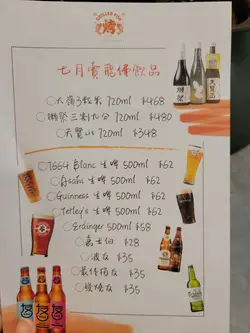 烤
七月賣飛佛飲品
720ml $468
獺祭三割九分 720ml $480
天寶山 720ml $348
1664 Blanc 生啤 500ml $62
Asahi 生啤 500ml $62
Guinness 生啤 500ml $62
Tetley's 生啤 500ml $62
Erdinger 500ml $58
嘉士伯 $28
$35
$35
$35